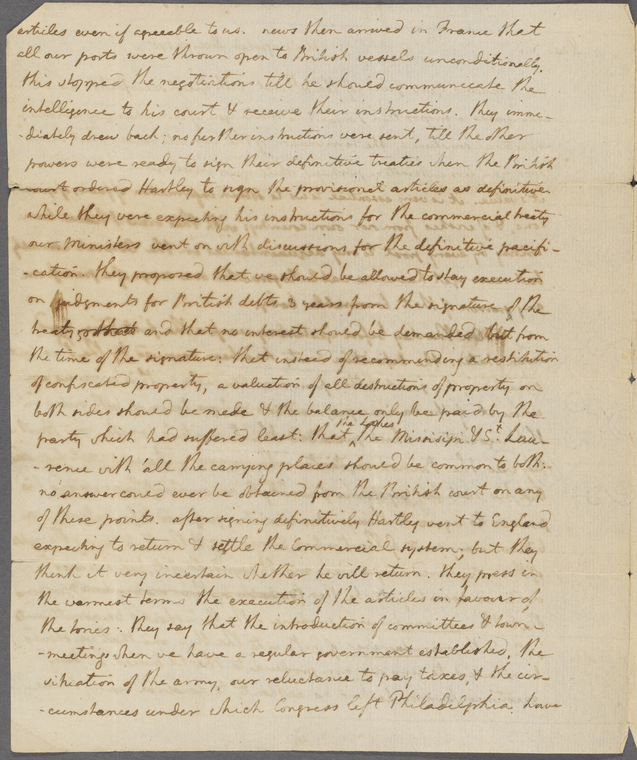 articles even if agreeable to us. news then arrived in France that
all our ports were thrown open to British vessels unconditionally.
this stopped the negotiations till he should communicate the
intelligence to his court & receive their instructions. they imme-
-diately drew back; no further instructions were sent, till the other
powers were ready to sign their definitive treaties when the British
court ordered Hartley to sign the provisional articles as definitive.
while they were expecting his instructions for the commercial treaty
our ministers went on with discussions for the definitive pacifi-
-cation. they proposed that we should be allowed to stay execution
on judgments for British debts 3 years from the signature of the
treaty, and that no interest should be demanded but from
the time of the signature: that instead of recommending a restitution
of confiscated property, a valuation of all destructions of property on
both sides should be made & the balance only be paid by the
party which had suffered least: that the Lakes, the Missisipi & St. Lau-
-rence with all the carrying places should be common to both.
no answer could ever be obtained from the British court on any
of these points. after signing definitively Hartley went to England
expecting to return & settle the Commercial system; but they
think it very incertain whether he will return. they press in
the warmest terms the execution of the articles in favour of
the tories. they say that the introduction of committees & town-
-meetings when we have a regular government established, the
situation of the army, our reluctance to pay taxes, & the cir-
-cumstances under which Congress left Philadelphia have